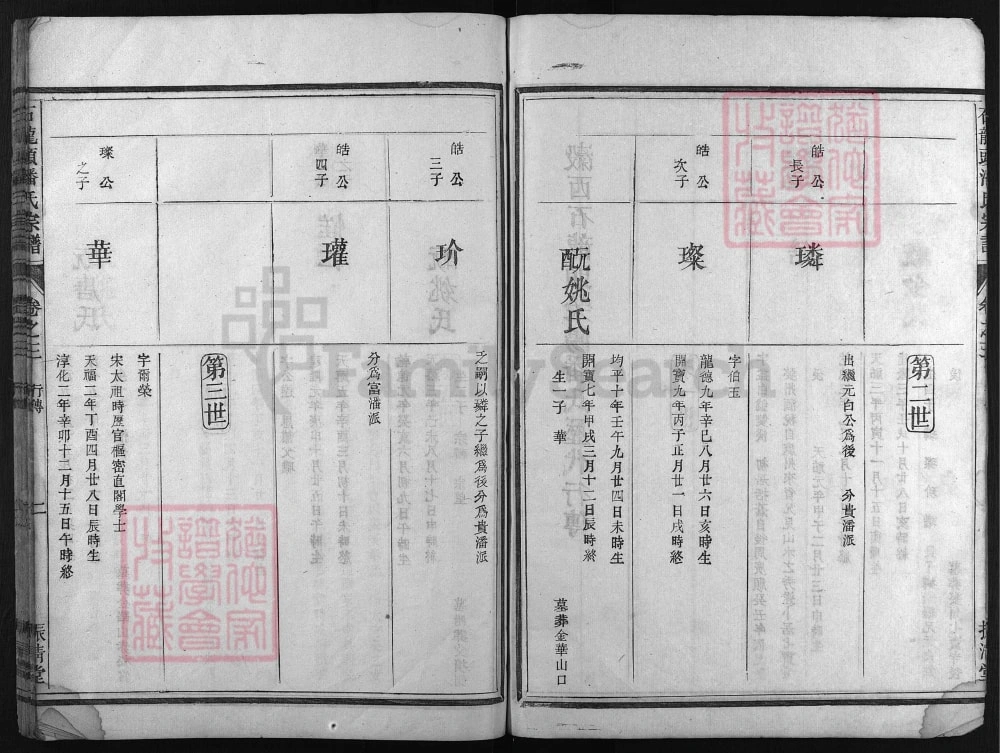 第二世
皓公
長子
璘
出繼元白公為後 分貴潘派
皓公
次子
璨
字伯玉
龍德九年辛巳八月廿六日亥時生
開寶九年丙子正月廿一日戌時終
配姚氏
均平十年壬午九月廿四日未時生
開寶七年甲戌三月十二日辰時終
生子華
墓葬金華山口
皓公
三子
玠
乏嗣以璘之子繼為後分為貴潘派
皓公
四子
瓘
分為富潘派
第三世
璨公
之子
華
字爾榮
宋太祖時歷官樞密直閣學士
天福二年丁酉四月廿八日辰時生
淳化二年辛卯十二月十五日午時終
石龍頭潘氏宗譜
卷之三
行傳
二
振清堂
FamilySearch